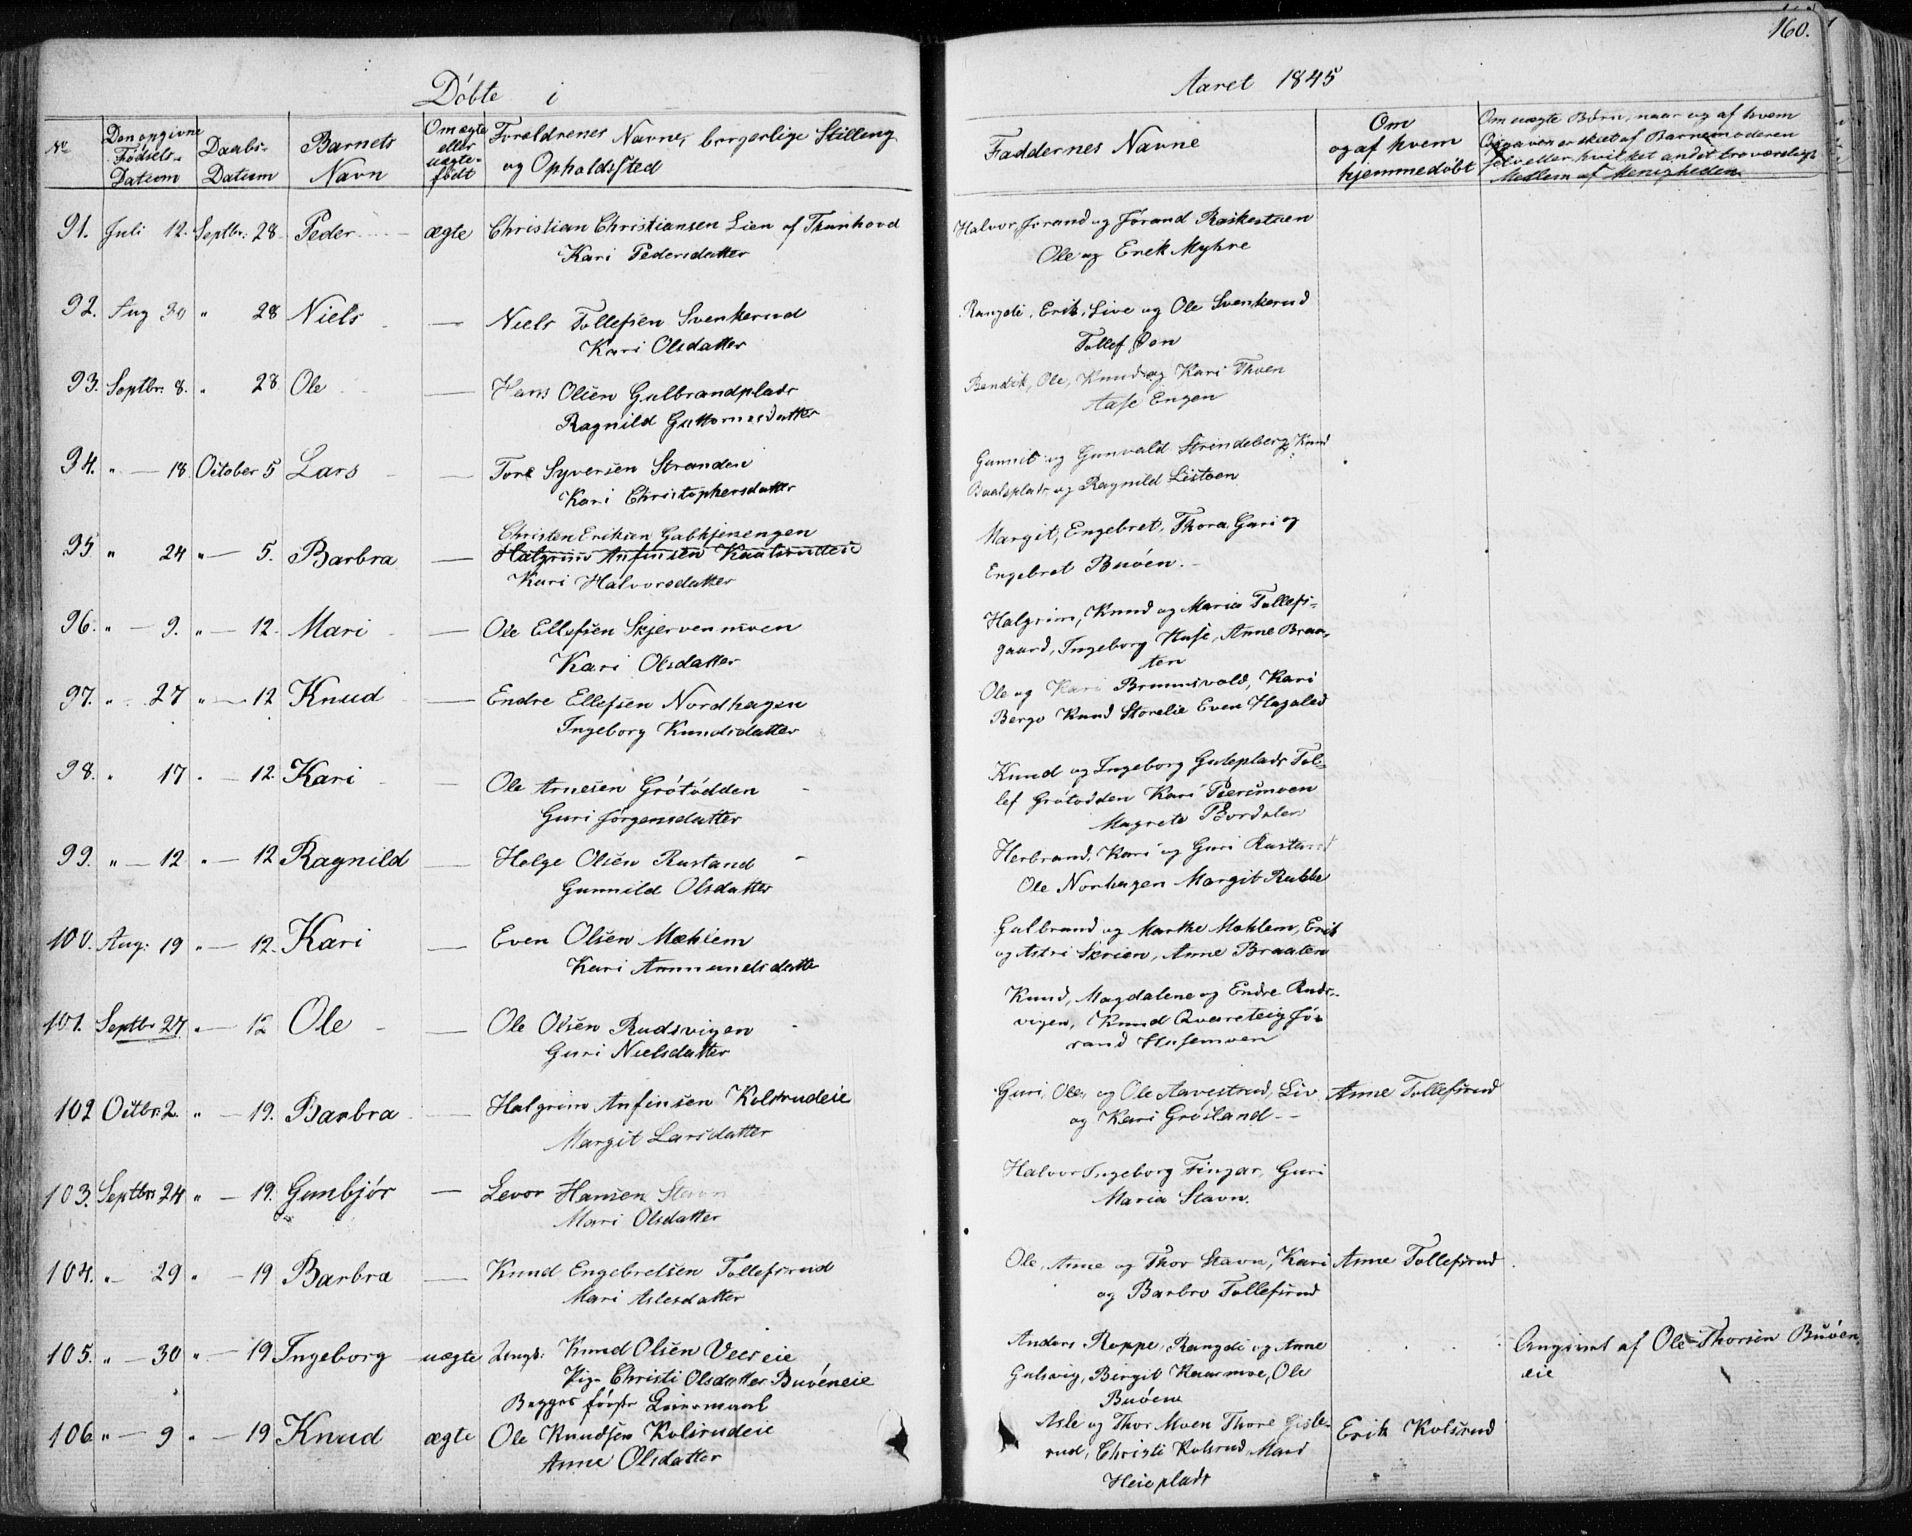 160.
Döbte i
Aaret 1845
No
Den opgivne
Fødsels-
Datum
Daabs-
Datum
Barnets
Navn
Om ægte
eller
uægte-
født
Forældrenes Navne, borgerlige Stilling
og Opholdssted
Faddernes Navne
Om
og af hvem
hjemmedøbt
Om uægte Børn, naar og af hvem
Opgaven er skeet af Barnemoderen
selv eller hvilket andet troværdigt
Medlem af Menigheden
91. Juli 12. Septbr: 28. Peder ægte Christian Christiansen Lien af Tunhovd
Kari Pedersdatter
Halvor, Jorand og Jörand
Ole og Erik Myhre
92. Aug 30 " 28 Niels — Niels Tollefsen Svenkerud
Kari Olsdatter
Rangdi, Erik, Live og Ole Svenkerud
Tollef Øen
93. Septbr. 8. " 28 Ole — Hans Olsen Gulbrandplads
Ragnild Guttormsdatter
Bendik, Ole, Knud og Kari Thoen
Aase Engen
94. " — 18 October 5 Lars — Tore Syversen Stranden
Kari Christophersdatter
Gunnil og Gunvald Strindeberg, Knud
Baaleplads og Ragnild Listøen
95 " 24 " — 5. Barbra — Christen Eriksen
Halgrim Anfinsen
Kari Halvorsdatter
Margit, Engebret, Thora, Guri og
Engebret Buöen. -
96. " — 9. " — 12. Mari — Ole Ellefsen Skjervenmoen
Kari Olsdatter
Halgrim, Knud og Maria Tollefs-
gaard, Ingeborg Anne Braa-
ten
97. " - 27 " — 12 Knud — Endre Ellefsen Nordhagen
Ingeborg Knudsdatter
Ole og Kari Brunsvold, Kari
Berge Knud Storelie Even Hagaled
98. " 17 " — 12. Kari — Ole Arnesen Grötödden
Guri Jörgensdatter
Knud og Ingeborg Guleplads Tol-
lef Grötodden Kari
Magrete
99. " — 12 " — 12 Ragnild — Helge Olsen Rustand
Gunnild Olsdatter
Herbrand, Kari og Guri Rustand
Ole Norhagen Margit
100. Aug: 19 " — 12. Kari — Even Olsen
Kari Ammundsdatter
Gulbrand og Marthe Mehlem, Erik
og Astri Skrien, Anne Braaten
101. Septbr 27. " — 12 Ole — Ole Olsen Rudsvigen
Guri Nielsdatter
Knud, Magdalene og Endre Ruds-
vigen, Knud Qverteig Jö-
rand Husemoen
102 Octbr: 2. " — 19. Barbra — Halgrim Anfinsen Kolsrudeie
Margit Larsdatter
Guri, Ole, og Ole Aavestrud, Liv
og Kari Grösland - -
Anne Tollefsrud
103. Septbr: 24 " — 19. Gunbjör — Levor Hansen Stavn
Mari Olsdatter
Halvor Ingeborg Fingar, Guri
Maria Stavn.
104. " - 29 " — 19 Barbra — Knud Engebretsen Tollefsrud
Mari Aslesdatter
Ole, Anne og Thor Stavn, Kari
og Barbro Tollefsrud
Anne Tollefsrud
105. " — 30 " — 19 Ingeborg uægte Ungk: Knud Olsen
Pige Christi Olsdatter Buöeneie
Begges förste Leiermaal
Anders Roppe, Rangdi og Anne
Gulsvig, Birgit Ole
Buöen
Angivet af Ole Thorsen Buöen
eie
106 " — 9 " — 19 Knud ægte Ole Knudsen Kolsrudeie
Anne Olsdatter
Asle og Thor Moen Thore Gisle-
rud, Christi Kolsrud, Mari
Heieplads
Erik Kolsrud